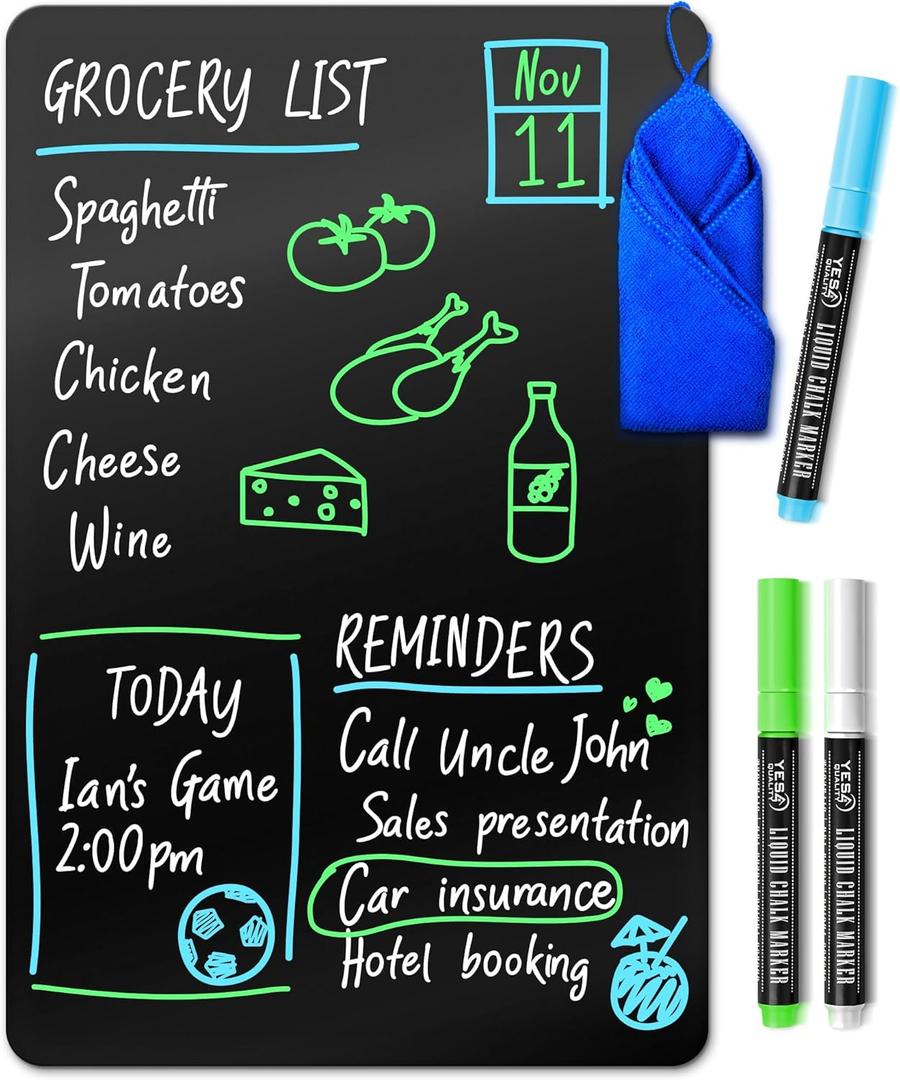 GROCERY LIST
Nov
11
Spaghetti
Tomatoes
Chicken
Cheese
Wine
TODAY
Ian's Game
2:00pm
REMINDERS
Call Uncle John
Sales presentation
Car insurance
Hotel booking
YES4
QUALITY
LIQUID CHALK MARKER
YES4
QUALITY
LIQUID CHALK MARKER
YES4
QUALITY
LIQUID CHALK MARKER